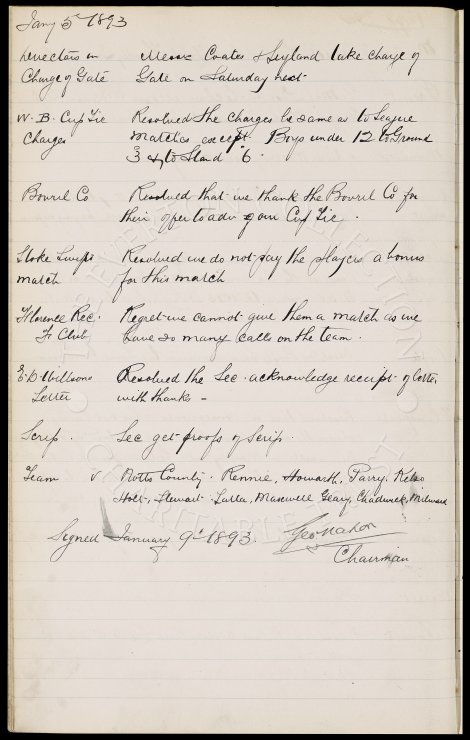 Jany 5th 1893
Directors in Messrs Coates & Leyland take charge of
Charge of Gate Gate on Saturday next
W. B. Cup Tie Resolved the Charges be same as to League
Charges Matches except Boys under 12 to Ground
3d & to Stand 6.
Bovril Co Resolved that we thank the Bovril Co for
their offer to adv our Cup Tie.
Stoke Swifts Resolved we do not pay the players a bonus
match for this match
Florence Rec. Regret we cannot give them a match as we
F Club have so many calls on the team.
E. D. Willsons Resolved the Sec. acknowledge receipt of letter
Letter with thanks -
Scrip. Sec get proofs of Scrip.
Team v Notts County. Rennie, Howarth, Parry, Kelso
Holt, Stewart. Latta, Maxwell Geary, Chadwick, Milward
Signed January 9th 1893. Geo Mahon
Chairman